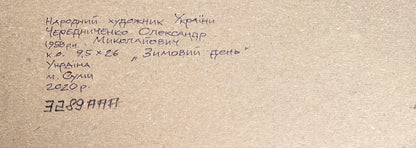 Народний художник України
Чередниченко Олександр
1958 р.н. Миколайович
х.о. 95 × 26 „Зимовий день"
Україна
м. Суми
2020 р
3289ААА